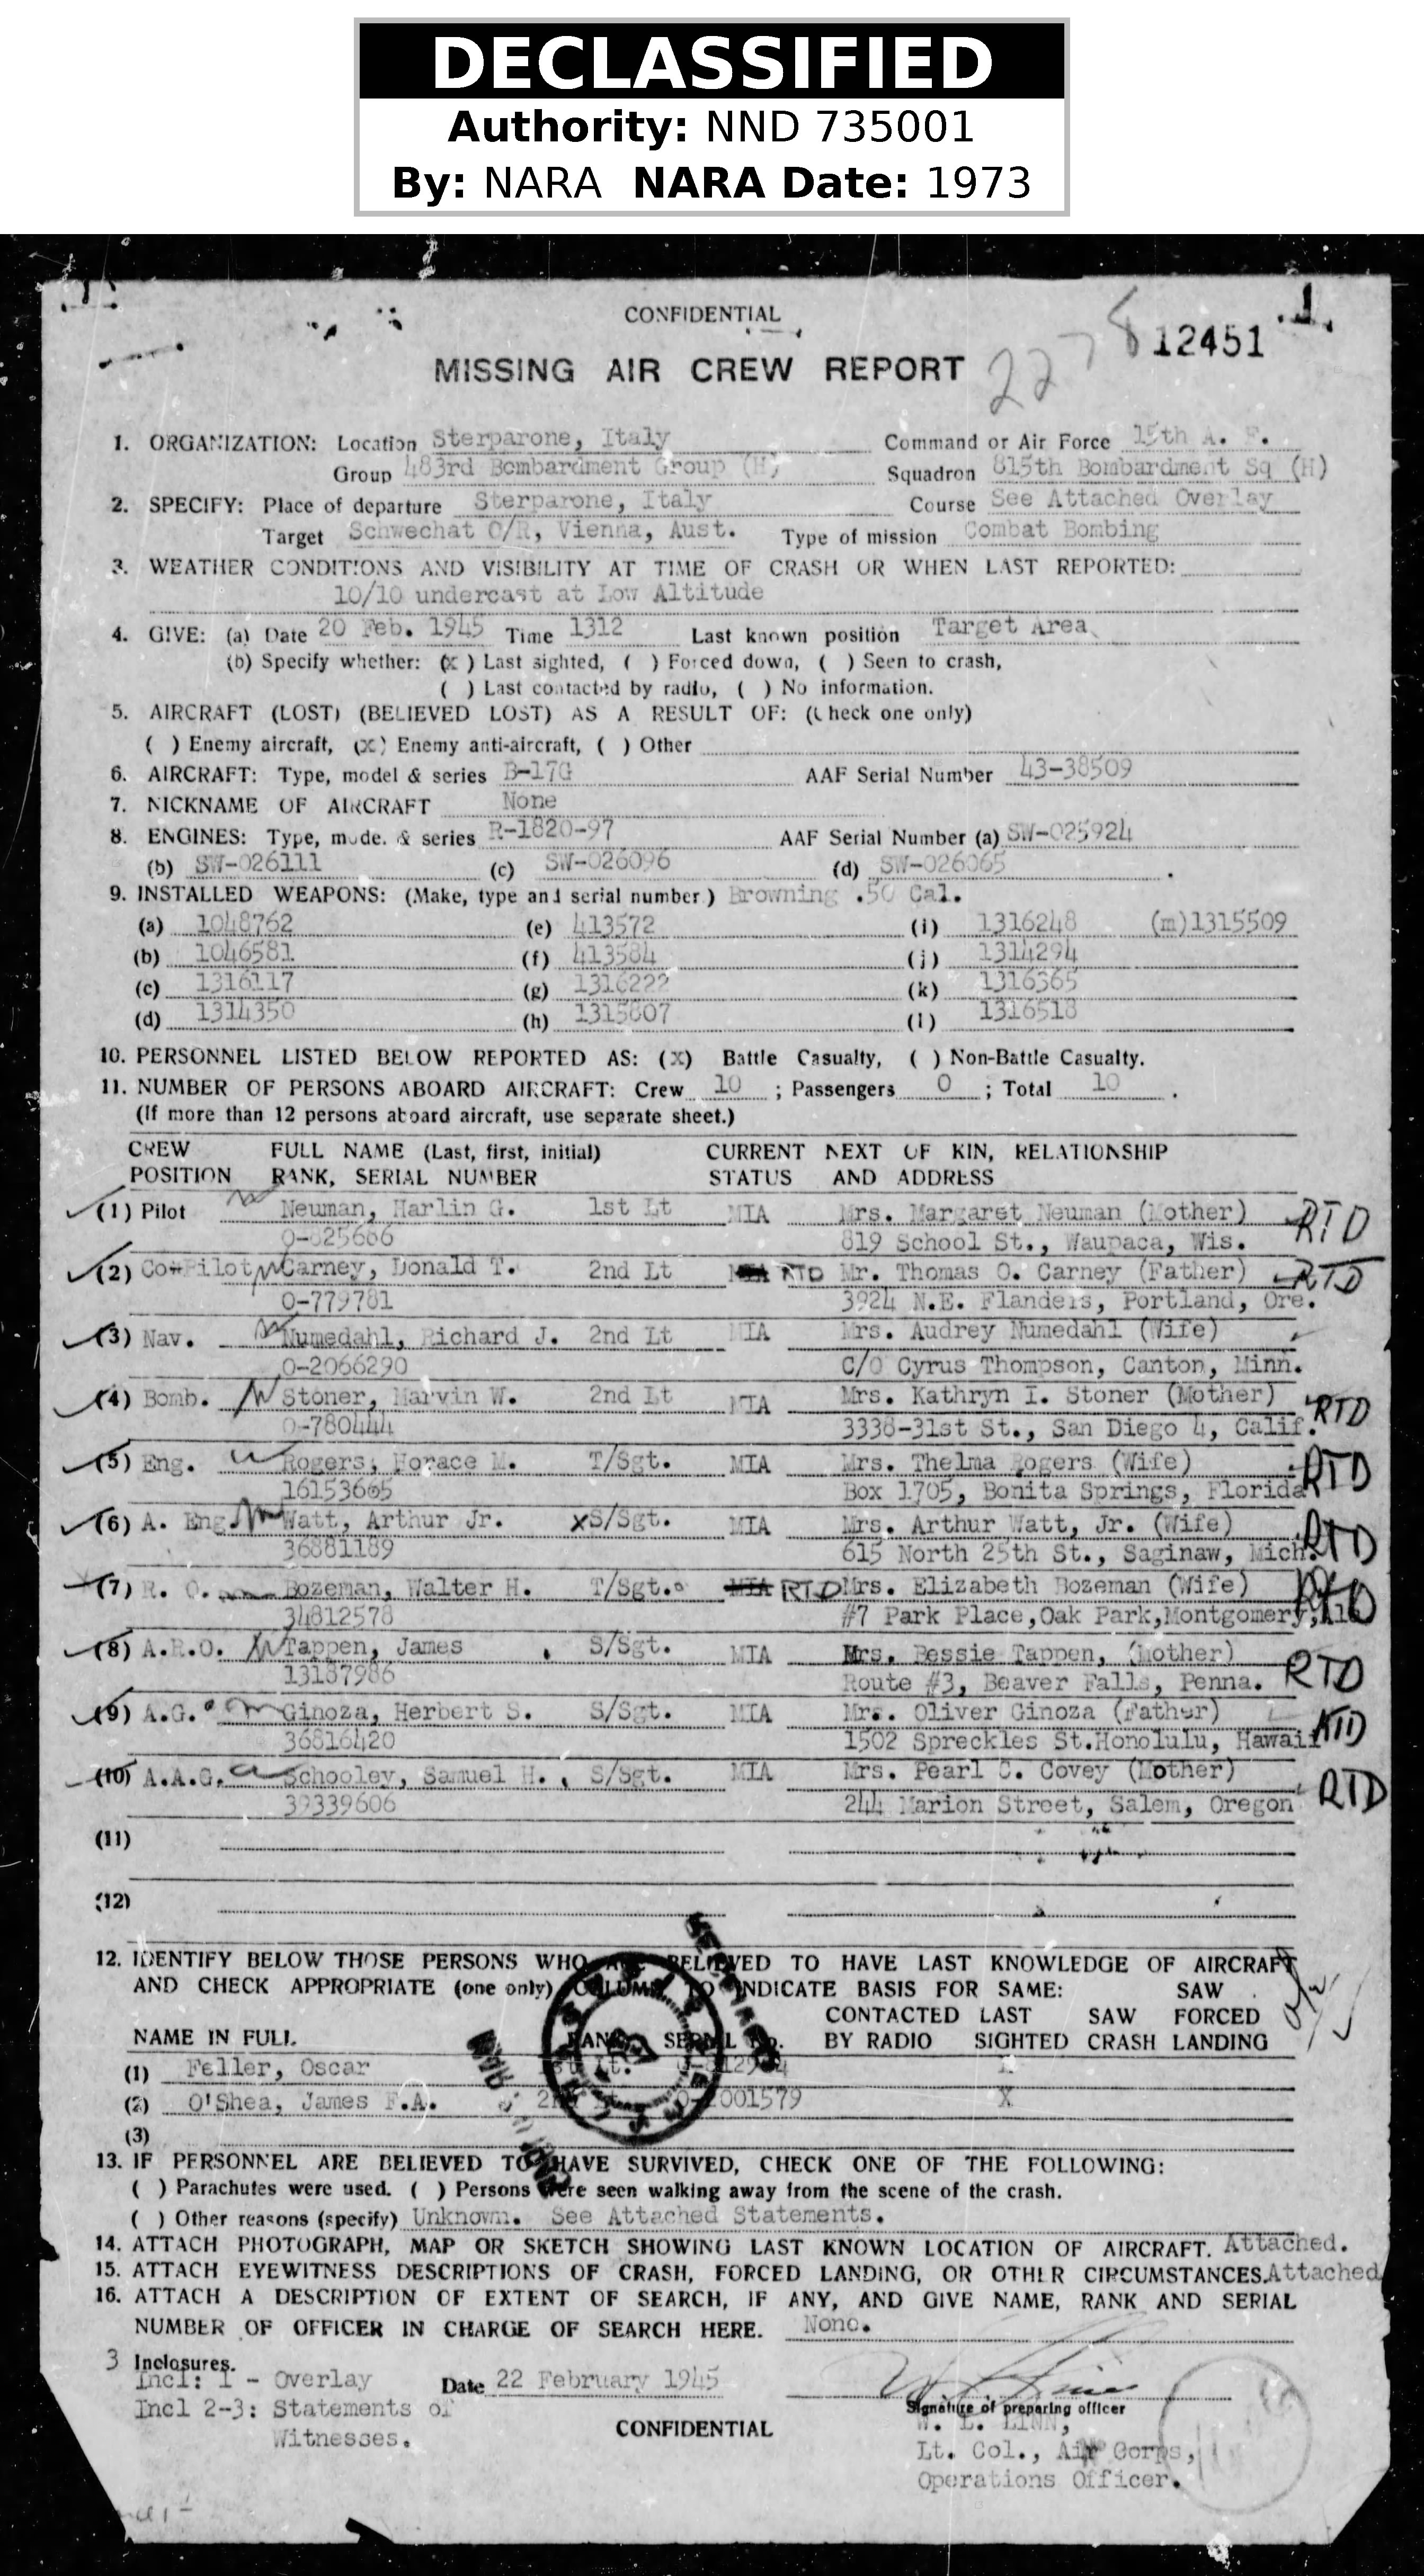 DECLASSIFIED
Authority: NND 735001
By: NARA NARA Date: 1973
CONFIDENTIAL
1.
2278 12451
MISSING AIR CREW REPORT
1. ORGANIZATION: Location Sterparone, Italy Command or Air Force 15th A. F.
Group 483rd Bombardment Group (H) Squadron 815th Bombardment Sq (H)
2. SPECIFY: Place of departure Sterparone, Italy Course See Attached Overlay
Target Schwechat O/R, Vienna, Aust. Type of mission Combat Bombing
3. WEATHER CONDITIONS AND VISIBILITY AT TIME OF CRASH OR WHEN LAST REPORTED:
10/10 undercast at Low Altitude
4. GIVE: (a) Date 20 Feb. 1945 Time 1312 Last known position Target Area
(b) Specify whether: (x) Last sighted, ( ) Forced down, ( ) Seen to crash,
( ) Last contacted by radio, ( ) No information.
5. AIRCRAFT (LOST) (BELIEVED LOST) AS A RESULT OF: (Check one only)
( ) Enemy aircraft, (x) Enemy anti-aircraft, ( ) Other
6. AIRCRAFT: Type, model & series B-17G AAF Serial Number 43-38509
7. NICKNAME OF AIRCRAFT None
8. ENGINES: Type, mode. & series R-1820-97 AAF Serial Number (a) SW-025924
(b) SW-026111 (c) SW-026096 (d) SW-026065.
9. INSTALLED WEAPONS: (Make, type and serial number) Browning .50 Cal.
(a) 1048762 (e) 413572 (i) 1316248 (m)1315509
(b) 1046581 (f) 413584 (j) 1314294
(c) 1316117 (g) 1316222 (k) 1316365
(d) 1314350 (h) 1315807 (l) 1316518
10. PERSONNEL LISTED BELOW REPORTED AS: (x) Battle Casualty, ( ) Non-Battle Casualty.
11. NUMBER OF PERSONS ABOARD AIRCRAFT: Crew 10 ; Passengers 0 ; Total 10 .
(If more than 12 persons aboard aircraft, use separate sheet.)
CREW FULL NAME (Last, first, initial) CURRENT NEXT OF KIN, RELATIONSHIP
POSITION RANK, SERIAL NUMBER STATUS AND ADDRESS
(1) Pilot Neuman, Harlin G. 1st Lt MIA Mrs. Margaret Neuman (Mother) RTD
0-825666 819 School St., Waupaca, Wis.
(2) Co-Pilot Carney, Donald T. 2nd Lt MIA RTD Mr. Thomas O. Carney (Father) RTD
0-779781 3924 N.E. Flanders, Portland, Ore.
(3) Nav. Numedahl, Richard J. 2nd Lt MIA Mrs. Audrey Numedahl (Wife)
0-2066290 C/O Cyrus Thompson, Canton, Minn.
(4) Bomb. Stoner, Marvin W. 2nd Lt MIA Mrs. Kathryn I. Stoner (Mother) RTD
0-780444 3338-31st St., San Diego 4, Calif.
(5) Eng. Rogers, Horace M. T/Sgt. MIA Mrs. Thelma Rogers (Wife) RTD
16153665 Box 1705, Bonita Springs, Florida
(6) A. Eng. Watt, Arthur Jr. xS/Sgt. MIA Mrs. Arthur Watt, Jr. (Wife) RTD
36881189 615 North 25th St., Saginaw, Mich.
(7) R. O. Bozeman, Walter H. T/Sgt. MIA RTD Mrs. Elizabeth Bozeman (Wife) RTD
34812578 #7 Park Place,Oak Park,Montgomery,Ala
(8) A.R.O. Tappen, James S/Sgt. MIA Mrs. Bessie Tappen, (Mother) RTD
13187986 Route #3, Beaver Falls, Penna.
(9) A.G. Ginoza, Herbert S. S/Sgt. MIA Mr. Oliver Ginoza (Father) RTD
36816420 1502 Spreckles St.Honolulu, Hawaii
(10) A.A.G. Schooley, Samuel H. S/Sgt. MIA Mrs. Pearl C. Covey (Mother) RTD
39339606 244 Marion Street, Salem, Oregon
(11)
(12)
12. IDENTIFY BELOW THOSE PERSONS WHO ARE BELIEVED TO HAVE LAST KNOWLEDGE OF AIRCRAFT
AND CHECK APPROPRIATE (one only) COLUMN TO INDICATE BASIS FOR SAME: SAW
CONTACTED LAST SAW FORCED
NAME IN FULL RANK SERIAL No. BY RADIO SIGHTED CRASH LANDING
(1) Feller, Oscar X
(2) O'Shea, James F.A. X
(3)
13. IF PERSONNEL ARE BELIEVED TO HAVE SURVIVED, CHECK ONE OF THE FOLLOWING:
( ) Parachutes were used. ( ) Persons were seen walking away from the scene of the crash.
( ) Other reasons (specify) Unknown. See Attached Statements.
14. ATTACH PHOTOGRAPH, MAP OR SKETCH SHOWING LAST KNOWN LOCATION OF AIRCRAFT. Attached.
15. ATTACH EYEWITNESS DESCRIPTIONS OF CRASH, FORCED LANDING, OR OTHER CIRCUMSTANCES.Attached
16. ATTACH A DESCRIPTION OF EXTENT OF SEARCH, IF ANY, AND GIVE NAME, RANK AND SERIAL
NUMBER OF OFFICER IN CHARGE OF SEARCH HERE. None.
3 Inclosures.
Incl: 1 - Overlay Date 22 February 1945
Incl 2-3: Statements of Signature of preparing officer
Witnesses. CONFIDENTIAL W. L. LINN,
Lt. Col., Air Corps,
Operations Officer.